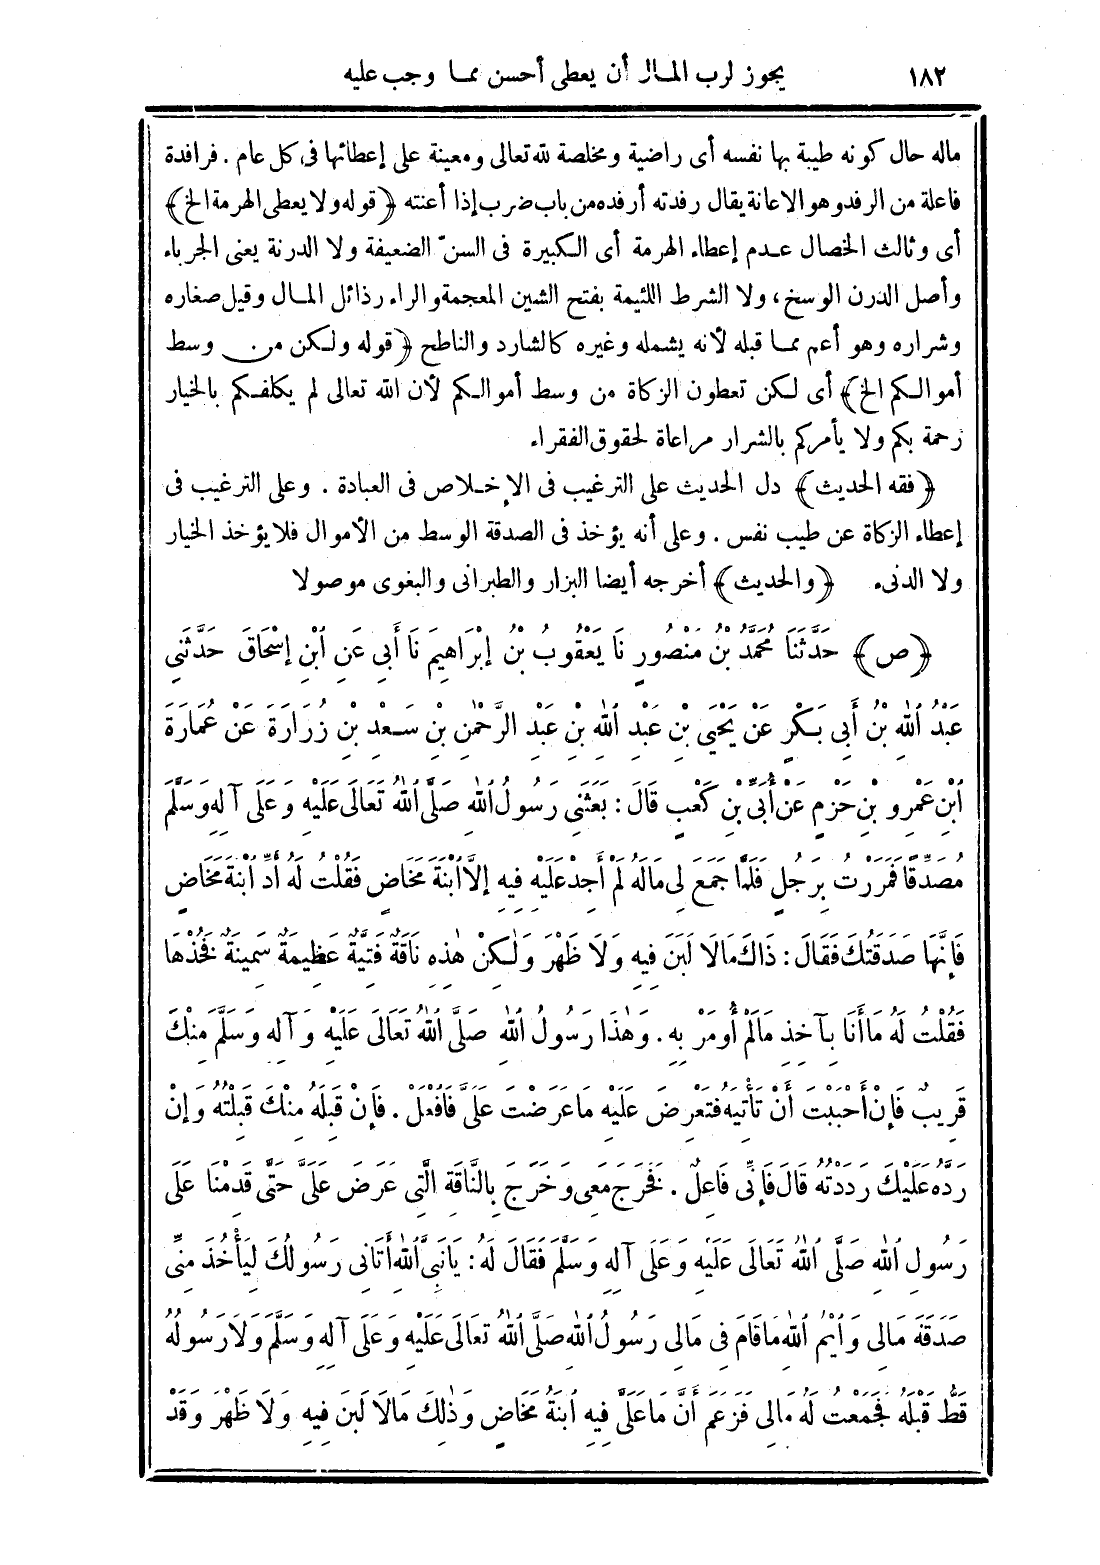 ١٨٢ يجوز لرب المال أن يعطى أحسن مما وجب عليه
ماله حال كونه طيبة بها نفسه أى راضية ومخلصة لله تعالى ومعينة على إعطائها فى كل عام . فرافدة
فاعلة من الرفد وهو الاعانة يقال رفدته أرفده من باب ضرب إذا أعنته ﴿قوله ولا يعطى الهرمة الخ﴾
أى وثالث الخصال عدم إعطاء الهرمة أى الكبيرة فى السنّ الضعيفة ولا الدرنة يعنى الجرباء
وأصل الدرن الوسخ، ولا الشرط اللئيمة بفتح الشين المعجمة والراء رذائل المال وقيل صغاره
وشراره وهو أعم مما قبله لأنه يشمله وغيره كالشارد والناطح ﴿قوله ولكن من وسط
أموالكم الخ﴾ أى لكن تعطون الزكاة من وسط أموالكم لأن الله تعالى لم يكلفكم بالخيار
رحمة بكم ولا يأمركم بالشرار مراعاة لحقوق الفقراء
﴿فقه الحديث﴾ دل الحديث على الترغيب فى الإخلاص فى العبادة . وعلى الترغيب فى
إعطاء الزكاة عن طيب نفس . وعلى أنه يؤخذ فى الصدقة الوسط من الأموال فلا يؤخذ الخيار
ولا الدنىء ﴿والحديث﴾ أخرجه أيضا البزار والطبرانى والبغوى موصولا
﴿ص﴾ حَدَّثَنَا مُحَمَّدُ بْنُ مَنْصُورٍ نَا يَعْقُوبُ بْنُ إِبْرَاهِيمَ نَا أَبِى عَنِ ابْنِ إِسْحَاقَ حَدَّثَنِى
عَبْدُ اللهِ بْنُ أَبِى بَكْرٍ عَنْ يَحْيَى بْنِ عَبْدِ اللهِ بْنِ عَبْدِ الرَّحْمٰنِ بْنِ سَعْدِ بْنِ زُرَارَةَ عَنْ عُمَارَةَ
ابْنِ عَمْرِو بْنِ حَزْمٍ عَنْ أُبَىِّ بْنِ كَعْبٍ قَالَ : بَعَثَنِى رَسُولُ اللهِ صَلَّى اللهُ تَعَالَى عَلَيْهِ وَعَلَى آلِهِ وَسَلَّمَ
مُصَدِّقًا فَمَرَرْتُ بِرَجُلٍ فَلَمَّا جَمَعَ لِى مَالَهُ لَمْ أَجِدْ عَلَيْهِ فِيهِ إِلَّا ابْنَةَ مَخَاضٍ فَقُلْتُ لَهُ أَدِّ ابْنَةَ مَخَاضٍ
فَإِنَّهَا صَدَقَتُكَ فَقَالَ : ذَاكَ مَا لَا لَبَنَ فِيهِ وَلَا ظَهْرَ وَلٰكِنْ هٰذِهِ نَاقَةٌ فَتِيَّةٌ عَظِيمَةٌ سَمِينَةٌ فَخُذْهَا
فَقُلْتُ لَهُ مَا أَنَا بِآخِذٍ مَا لَمْ أُومَرْ بِهِ . وَهٰذَا رَسُولُ اللهِ صَلَّى اللهُ تَعَالَى عَلَيْهِ وَآلِهِ وَسَلَّمَ مِنْكَ
قَرِيبٌ فَإِنْ أَحْبَبْتَ أَنْ تَأْتِيَهُ فَتَعْرِضَ عَلَيْهِ مَا عَرَضْتَ عَلَىَّ فَافْعَلْ . فَإِنْ قَبِلَهُ مِنْكَ قَبِلْتُهُ وَإِنْ
رَدَّهُ عَلَيْكَ رَدَدْتُهُ قَالَ فَإِنِّى فَاعِلٌ . فَخَرَجَ مَعِى وَخَرَجَ بِالنَّاقَةِ الَّتِى عَرَضَ عَلَىَّ حَتَّى قَدِمْنَا عَلَى
رَسُولِ اللهِ صَلَّى اللهُ تَعَالَى عَلَيْهِ وَعَلَى آلِهِ وَسَلَّمَ فَقَالَ لَهُ : يَا نَبِىَّ اللهِ أَتَانِى رَسُولُكَ لِيَأْخُذَ مِنِّى
صَدَقَةَ مَالِى وَايْمُ اللهِ مَا قَامَ فِى مَالِى رَسُولُ اللهِ صَلَّى اللهُ تَعَالَى عَلَيْهِ وَعَلَى آلِهِ وَسَلَّمَ وَلَا رَسُولُهُ
قَطُّ قَبْلَهُ فَجَمَعْتُ لَهُ مَالِى فَزَعَمَ أَنَّ مَا عَلَىَّ فِيهِ ابْنَةُ مَخَاضٍ وَذٰلِكَ مَا لَا لَبَنَ فِيهِ وَلَا ظَهْرَ وَقَدْ